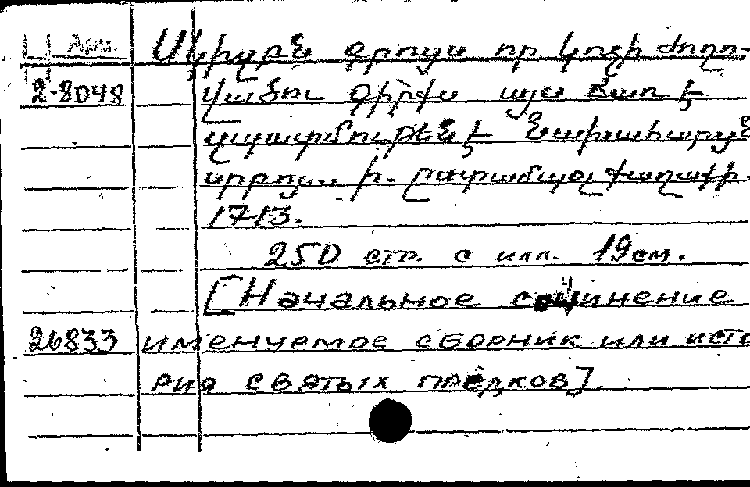 Арм.
2-8048
Սկիզբն գրոյս որ կոչի ժողո-
վածու գիրքս այս ճառ է
պատմութենէ նախահարցն
սրբոյ.. ի
1713.
250 стр. с илл. 19см.
[Начальное сочинение
26833 именуемое сборник или исто
рия святых предков]